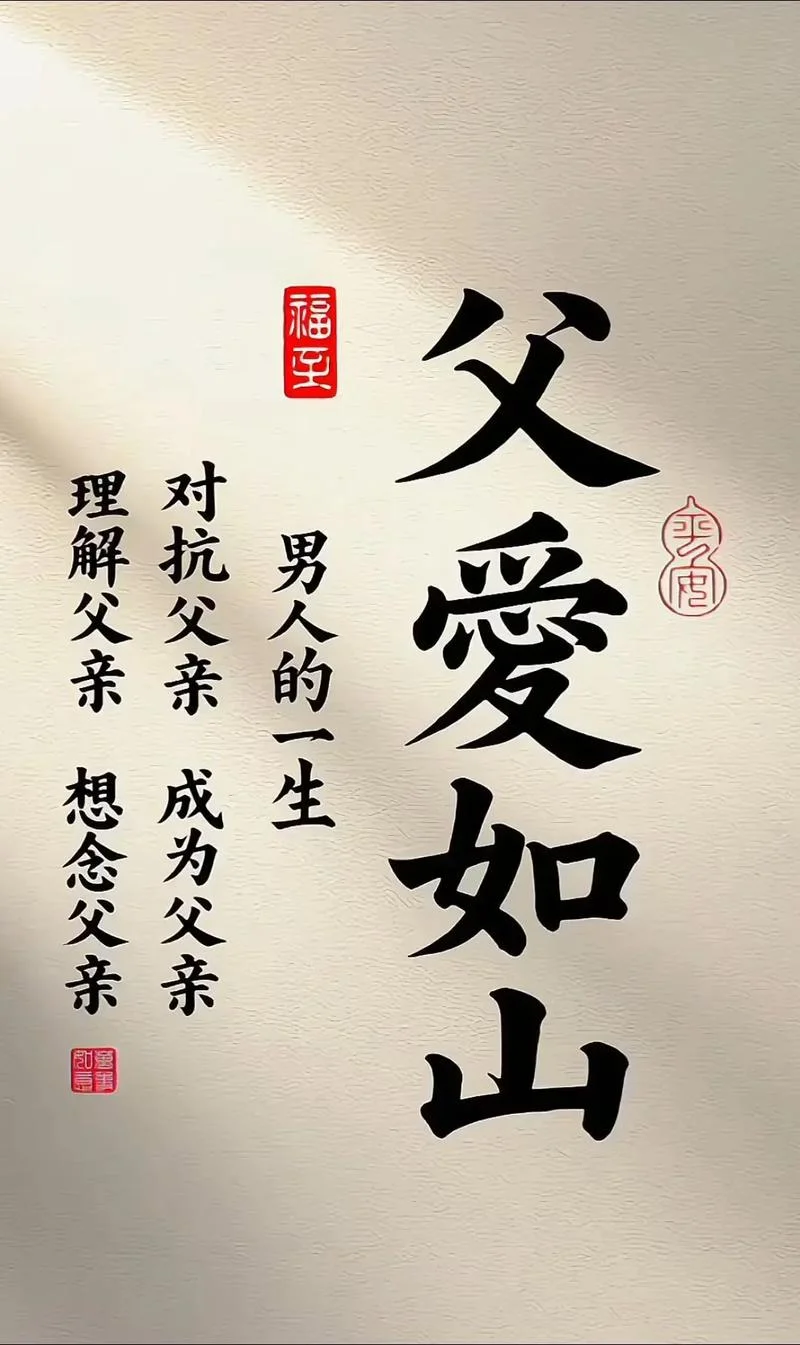 父愛如山
平安
福至
男人的一生
对抗父亲 成为父亲
理解父亲 想念父亲
萬事如意